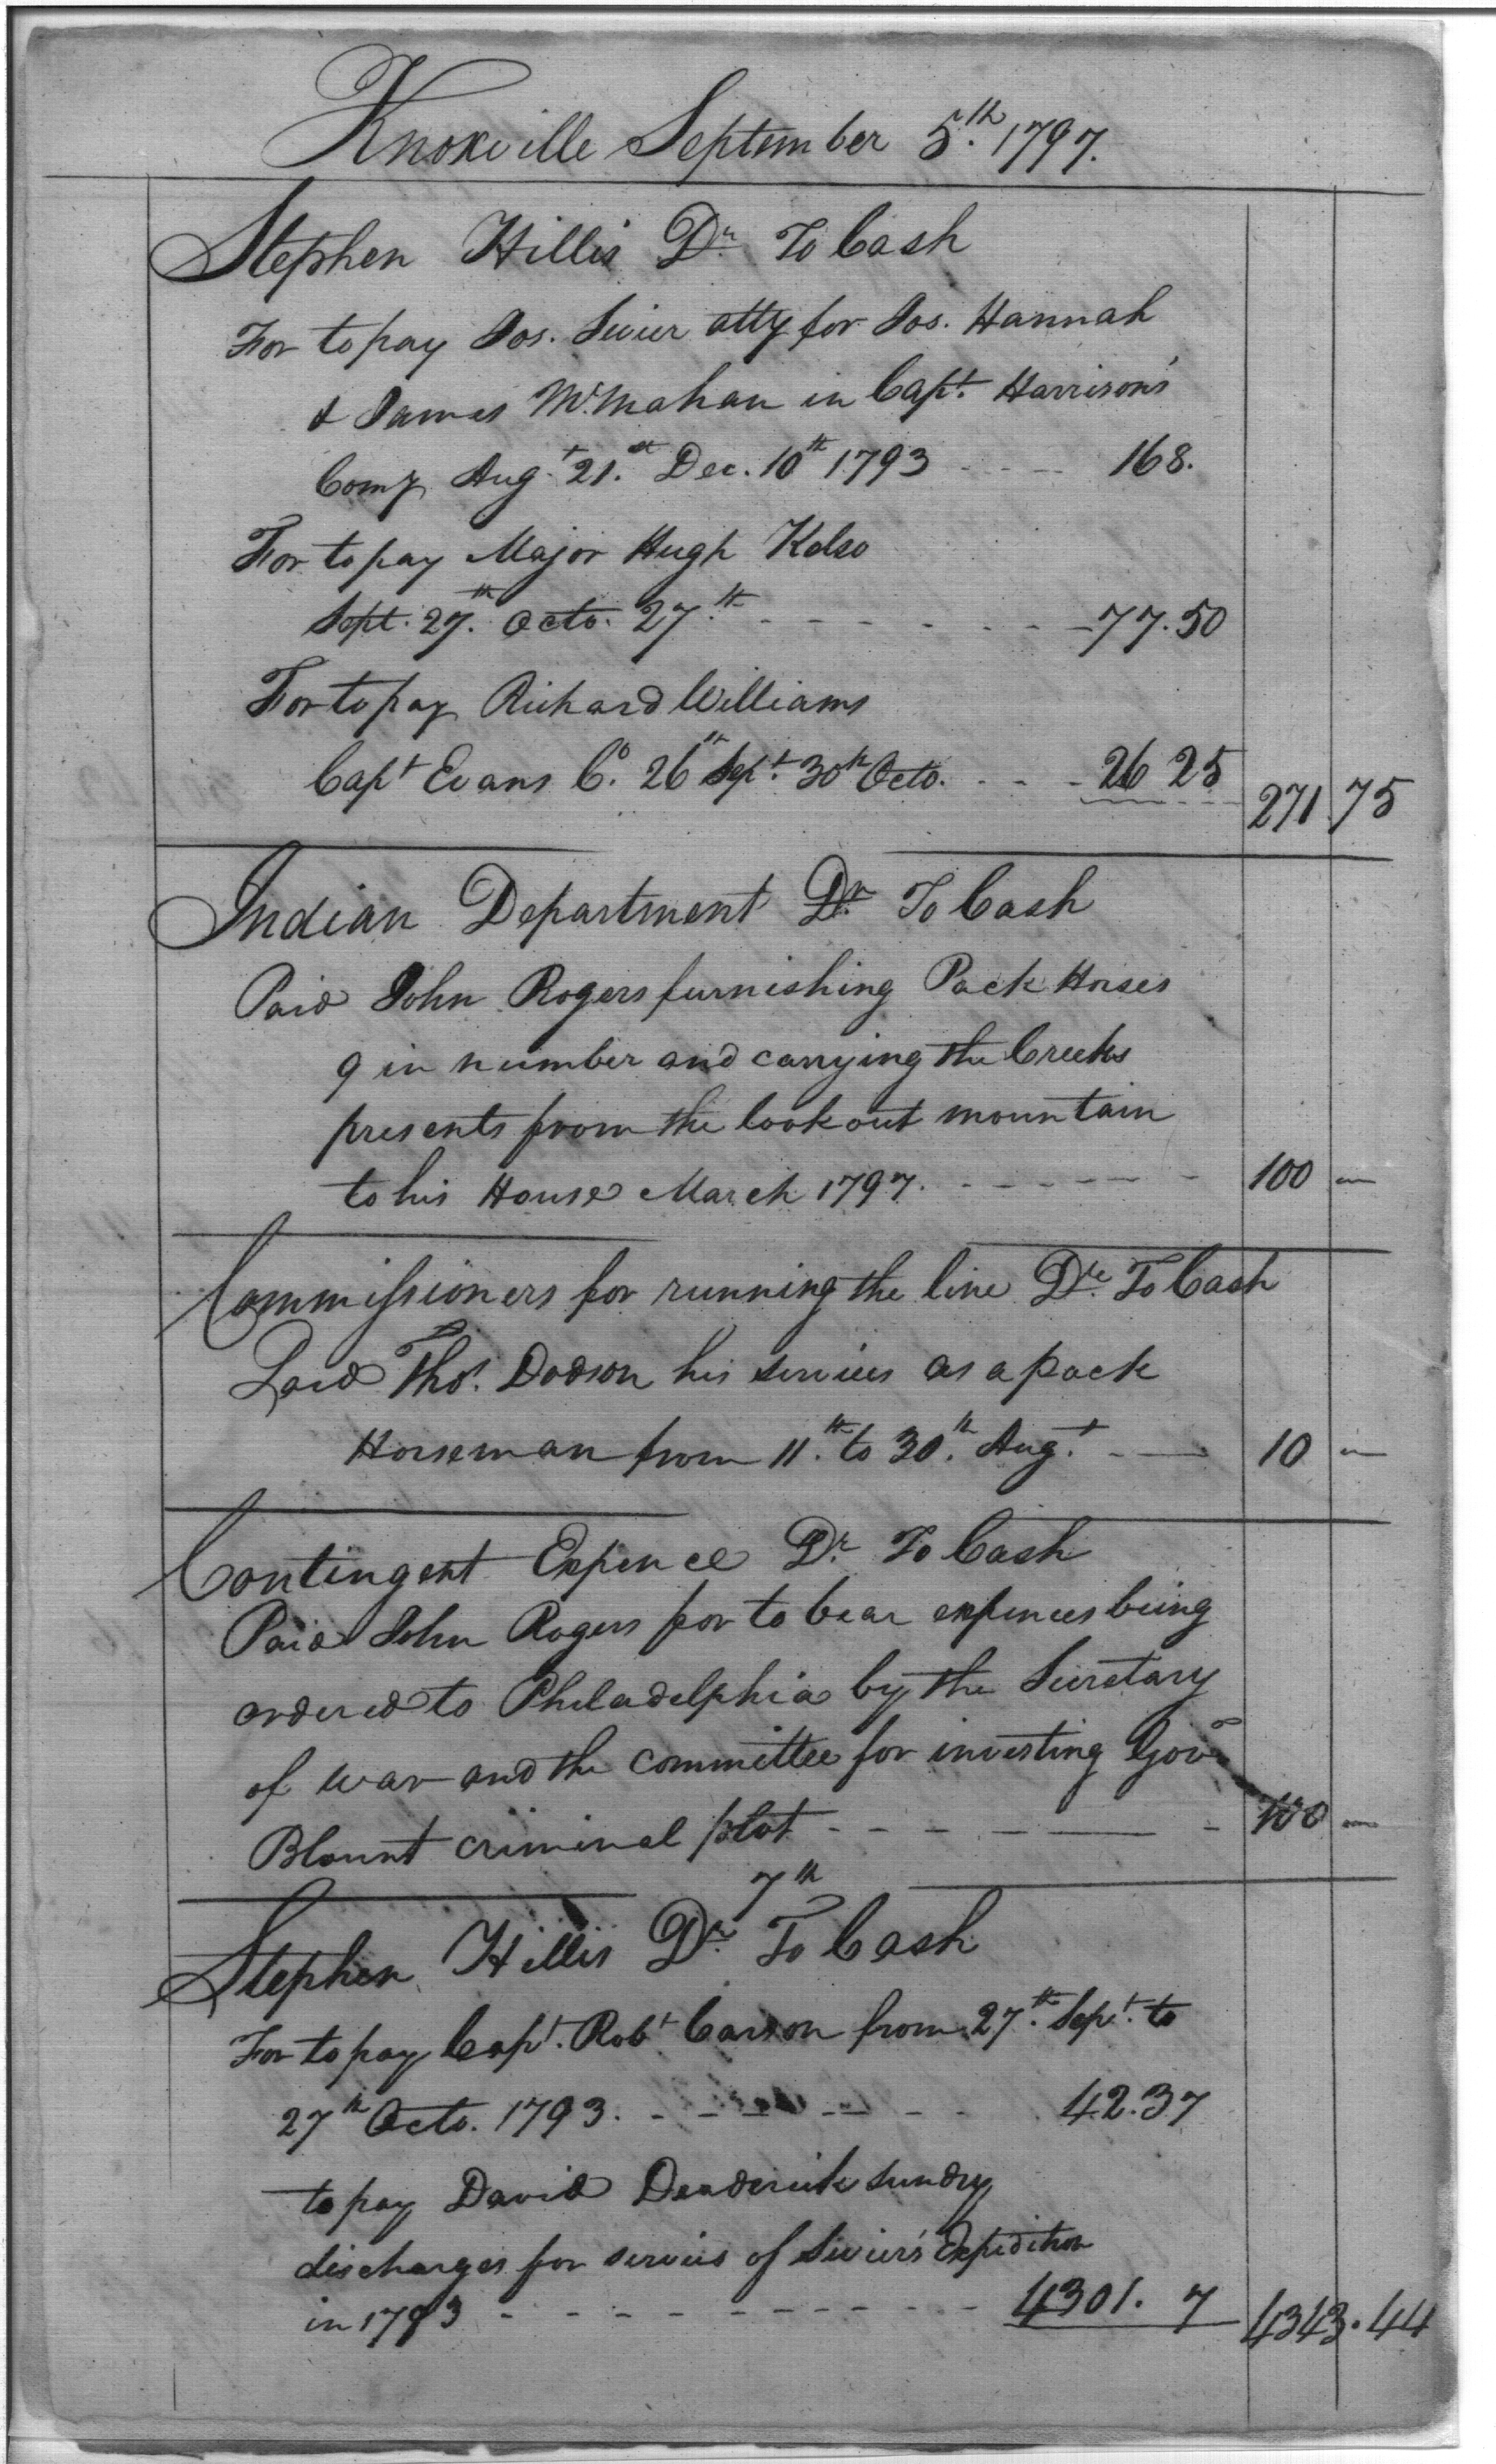 Knoxville September 5th. 1797.
Stephen Hillis Dr. To Cash
For to pay Jos. Sevier atty for Jos. Hannah
& James McMahan in Capt. Harrison's
Comy Augt 21.st Dec. 10th 1793 - - - - 168.
For to pay Major Hugh Kelso
Sept. 27.th Octo. 27.th - - - - - - - 77.50
For to pay Richard Williams
Capt Evans Co. 26th Sept. 30th Octo. - - - 26 25 271 75
Indian Department Dr. To Cash
Paid John Rogers furnishing Pack Horses
9 in number and carrying the Creeks
presents from the look out mountain
to his House March 1797. - - - - - - 100 —
Commissioners for running the line Dr. To Cash
Paid Thos. Dodson his services as a pack
Horseman from 11.th to 30.th Augt. - — 10 —
Contingent Expence Dr. To Cash
Paid John Rogers for to bear expences being
ordered to Philadelphia by the Secretary
of war and the committee for investing Govr
Blount criminal plot - - - - — - 100 —
7th
Stephen Hillis Dr. To Cash
For to pay Capt. Robt Carson from 27.th Sept. to
27th Octo. 1793. - - - - - - 42.37
to pay David Deaderick sundry
discharges for services of Sevier's Expedition
in 1793 - - - - - - - - - 4301. 7 4343.44